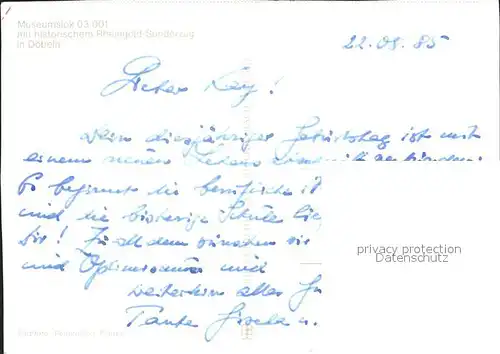 Museumslok 03 001
mit historischem Rheingold-Sonderzug
in Döbeln
22.08.85
Lieber Kay!
Dein diesjähriger Geburtstag ist mit
einem neuen Lebensabschnitt
Es beginnt die berufliche
und die bisherige Schule
Dir! Zu all dem wünschen wir
und Optimismus und
weiterhin alles
Tante Gisela u.
privacy protection
Datenschutz